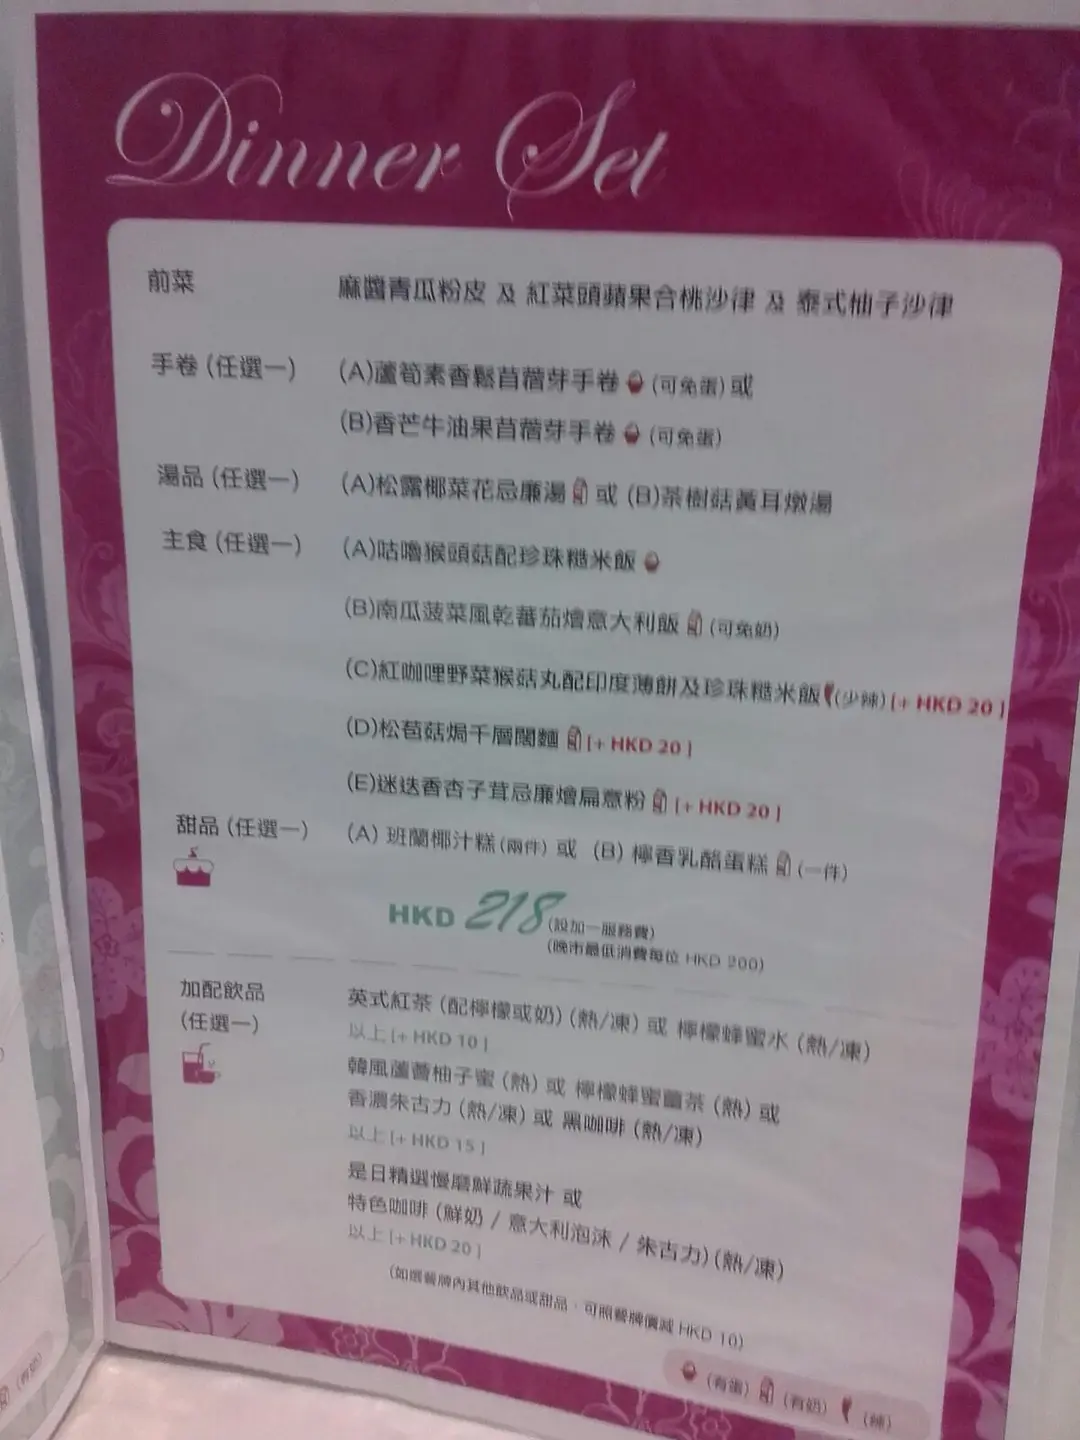 Dinner Set
前菜 麻醬青瓜粉皮 及 紅菜頭蘋果合桃沙律 及 泰式柚子沙律
手卷 (任選一) (A)蘆筍素香鬆苜蓿芽手卷 (可免蛋) 或
(B)香芒牛油果苜蓿芽手卷 (可免蛋)
湯品 (任選一) (A)松露椰菜花忌廉湯 或 (B)茶樹菇黃耳燉湯
主食 (任選一) (A)咕嚕猴頭菇配珍珠糙米飯
(B)南瓜菠菜風乾蕃茄燴意大利飯 (可免奶)
(C)紅咖哩野菜猴菇丸配印度薄餅及珍珠糙米飯 (少辣) [+ HKD 20 ]
(D)松苞菇焗千層闊麵 [+ HKD 20 ]
(E)迷迭香杏子茸忌廉燴扁意粉 [+ HKD 20 ]
甜品 (任選一) (A) 班蘭椰汁糕 (兩件) 或 (B) 檸香乳酪蛋糕 (一件)
HKD 218 (設加一服務費)
(晚市最低消費每位 HKD 200)
加配飲品 英式紅茶 (配檸檬或奶) (熱/凍) 或 檸檬蜂蜜水 (熱/凍)
(任選一) 以上 [+ HKD 10 ]
韓風蘆薈柚子蜜 (熱) 或 檸檬蜂蜜薑茶 (熱) 或
香濃朱古力 (熱/凍) 或 黑咖啡 (熱/凍)
以上 [+ HKD 15 ]
是日精選慢磨鮮蔬果汁 或
特色咖啡 (鮮奶 / 意大利泡沫 / 朱古力) (熱/凍)
以上 [+ HKD 20 ]
(如選餐牌內其他飲品或甜品，可照餐牌價減 HKD 10)
(有蛋) (有奶) (辣)
(有奶)